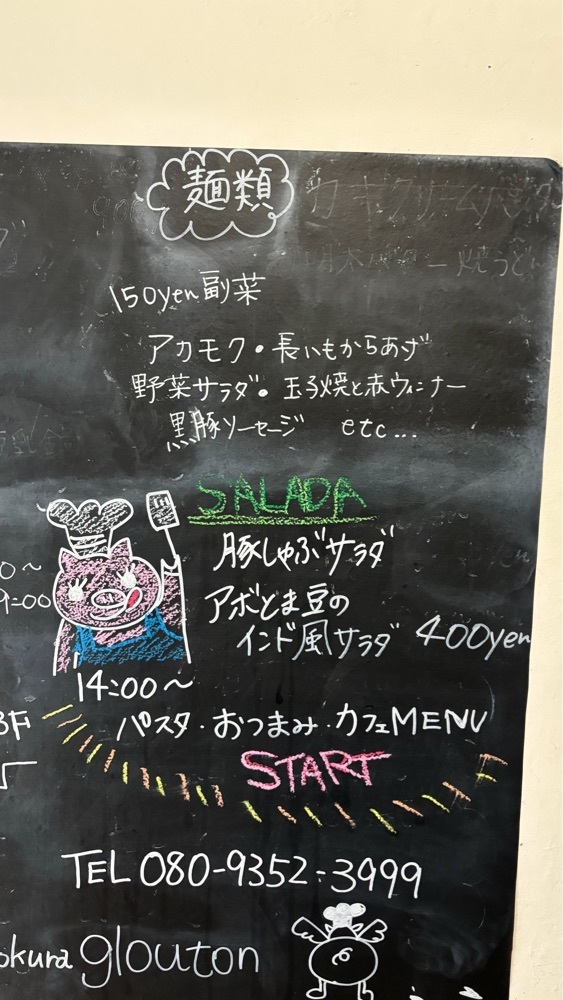 麺類
150yen 副菜
アカモク・長いもからあげ
野菜サラダ。玉子焼と赤ウィンナー
黒豚ソーセージ etc...
SALADA
豚しゃぶサラダ
アボとま豆の
インド風サラダ 400yen
0～
9:00
14:00～
3F
パスタ・おつまみ・カフェMENU
START
TEL 080-9352-3999
okura glouton